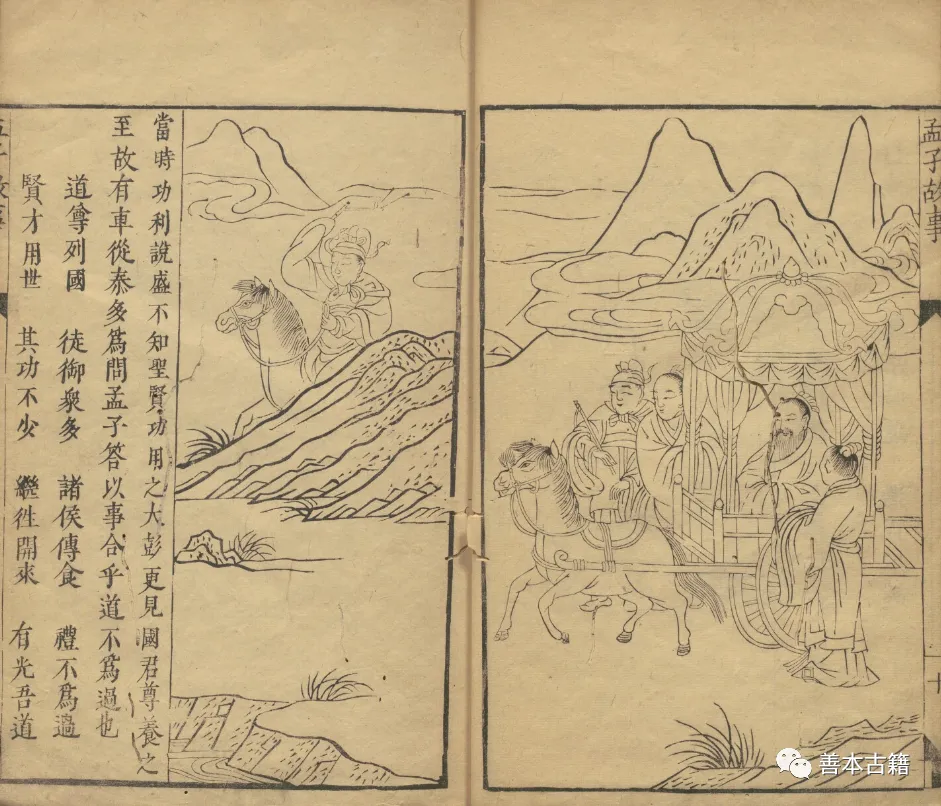 孟子故事
當時功利說盛不知聖賢功用之大彭更見國君尊養之
至故有車從泰多爲問孟子答以事合乎道不爲過也
道尊列國 徒御衆多 諸侯傳食 禮不爲過
賢才用世 其功不少 繼徃開來 有光吾道
善本古籍